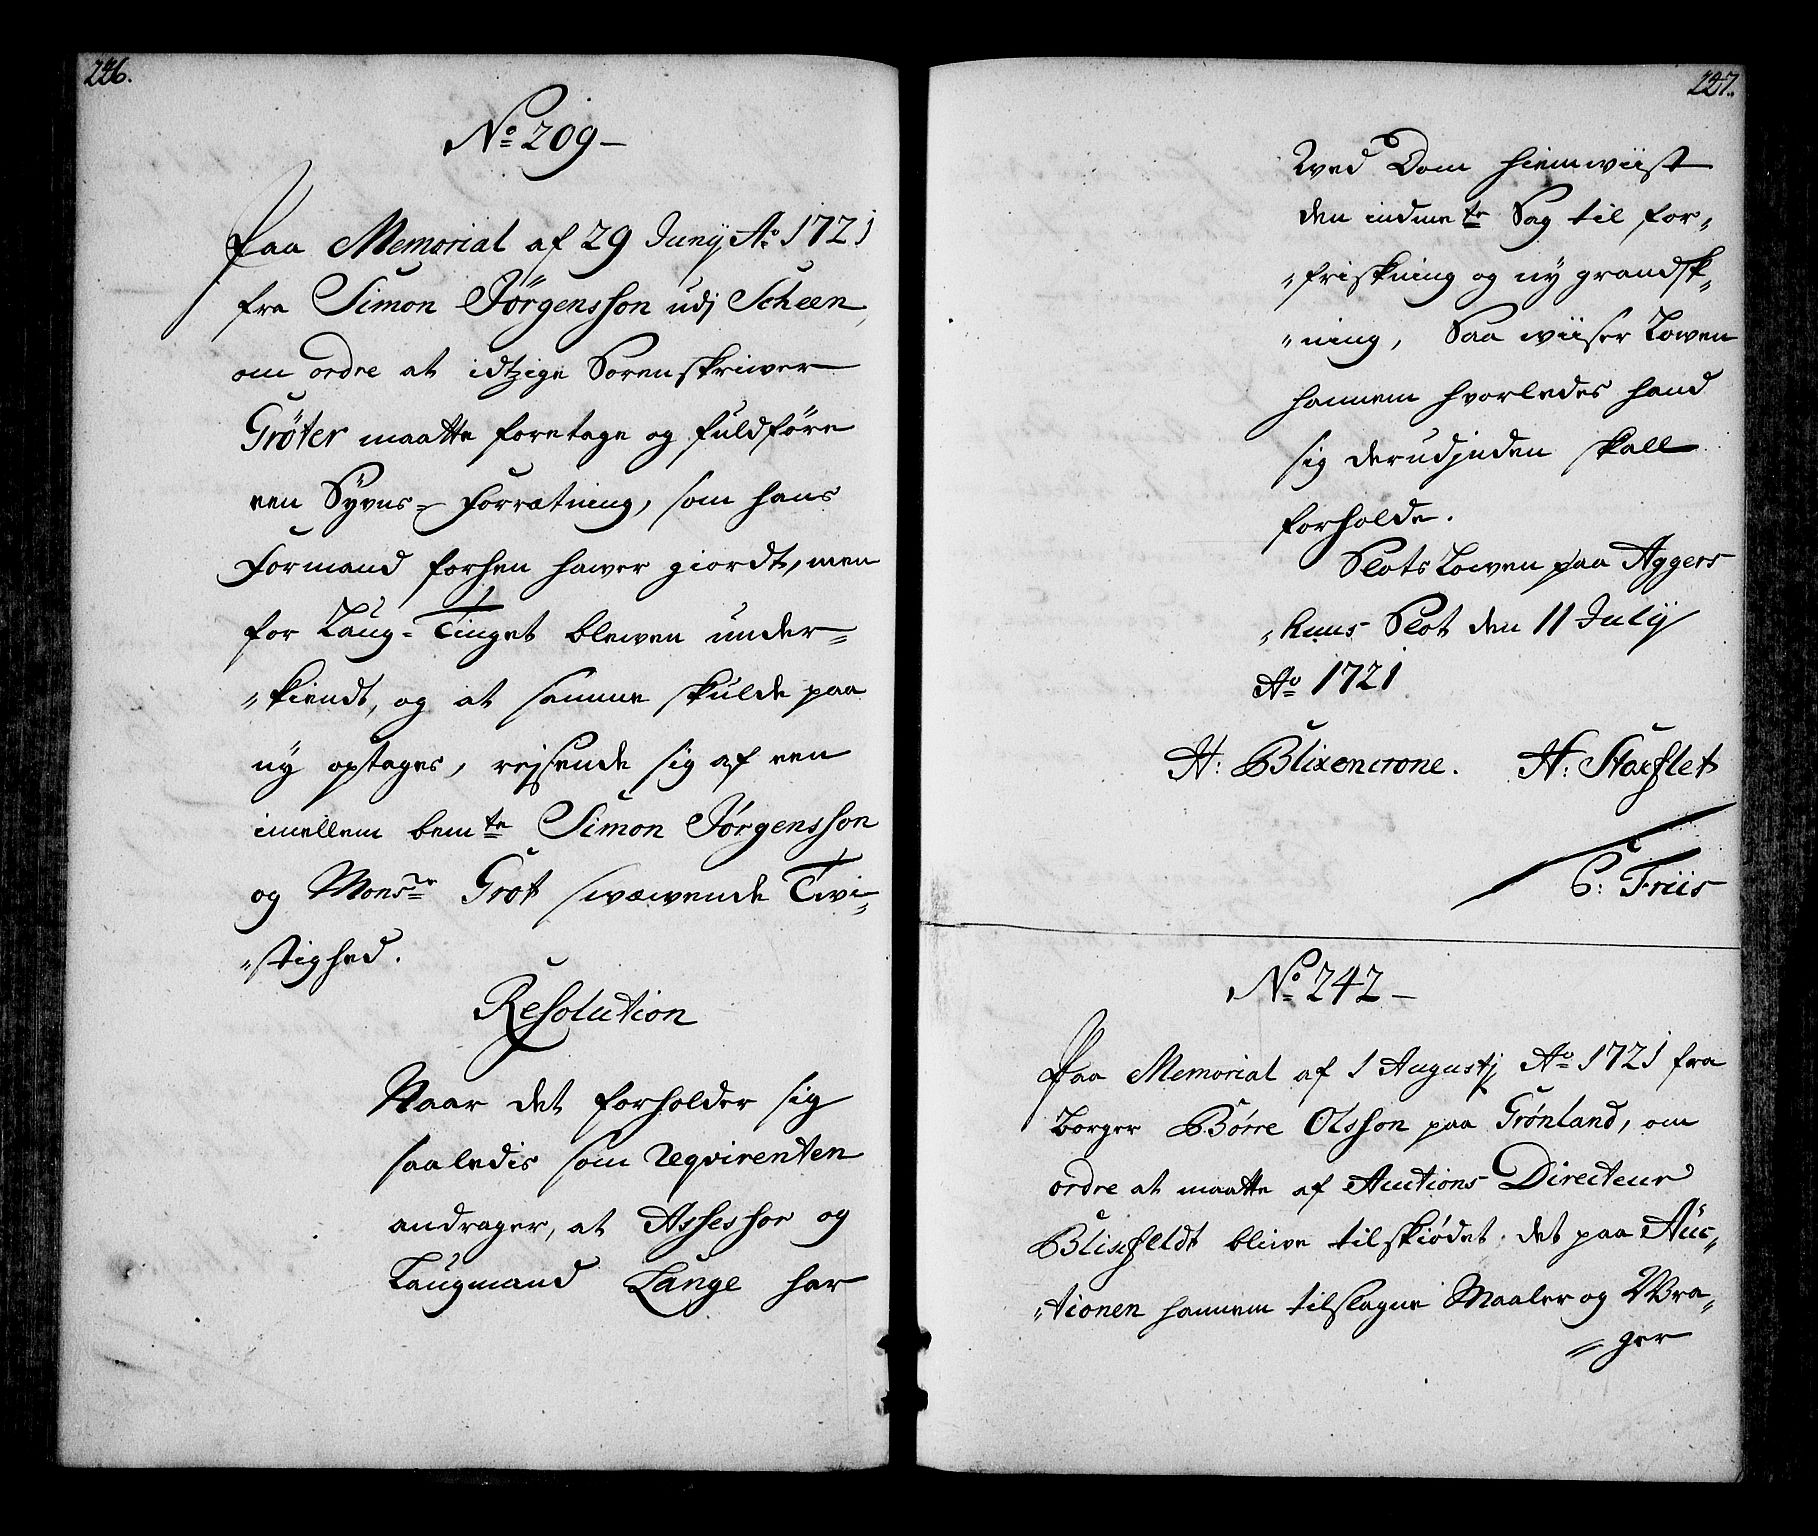 226.
No 209 —
Paa Memorial af 29 Junÿ Ao 1721
fra Simon Jørgensson udj Scheen,
om ordre at idtzige Sorenskriwer
Grøter maatte foretage og fuldføre
een Syvns- Forrætning, som hans
Formand forhen hawer giordt, men
for Laug-Tinget blewen under-
kiendt, og at samme skulde paa
ny optages, rejsende sig af een
imellem bemte Simon Jørgensson
og Monsr Grot swæwende Twi-
stighed.
Resolution
Naar det forholder sig
saaledis som Reqvirenten
andrager, at Assessor og
Laugmand Lange har
227.
Wed Dom hiemwiist
den indmelte Sag til for-
friskning og ny grandsk-
ning, Saa wiiser Lowen
hannem hvorledes hand
sig derudjnden skall
forholde.
Slots Lowen paa Aggers
huus Slot den 11 Julÿ
Ao 1721
H: Blixencrone. H: Stocflet
C: Friis
No 242 —
Paa Memorial af 1 Augustj Ao 1721 fra
Borger Børre Olsson paa Grønland, om
ordre at maatte af Auctions Directeur
Blischfeldt bliwe tilskiødet det paa Auc-
tionen hannem tilslagne Maaler og Wra-
ger